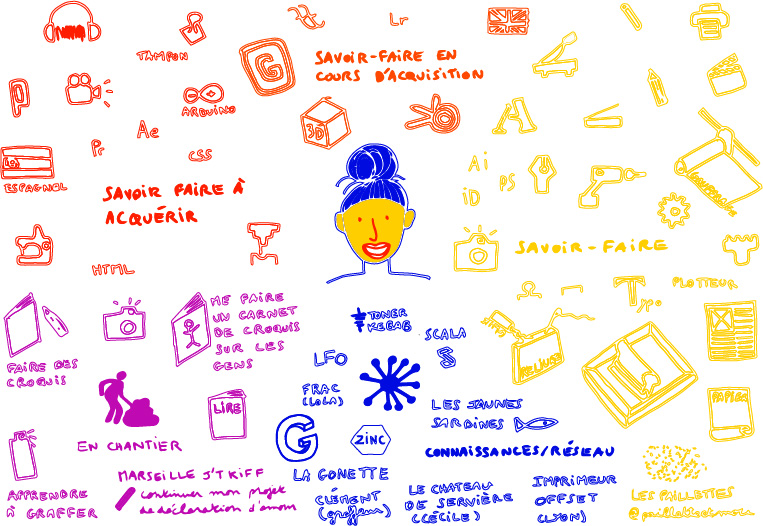 TAMPON
Lr
SAVOIR-FAIRE EN
COURS D'ACQUISITION
G
P
ARDUINO
3D
Ae
Pr
CSS
ESPAGNOL
SAVOIR FAIRE À
ACQUÉRIR
HTML
A
Ai
iD
PS
SAVOIR-FAIRE
Type
PLOTTEUR
PELLICULE
PAPIER
ME FAIRE
UN CARNET
DE CROQUIS
SUR LES
GENS
FAIRE DES
CROQUIS
LIRE
EN CHANTIER
APPRENDRE
À GRAFFER
MARSEILLE J'T KIFF
continuer mon projet
de déclaration d'amour
TONER
KEBAB
SCALA
S
LFO
FRAC
(LOLA)
LES JAUNES
SARDINES
G
ZINC
CONNAISSANCES/RÉSEAU
LA GONETTE
CLÉMENT
(graffeur)
LE CHATEAU
DE SERVIÈRE
(CÉCILE)
IMPRIMEUR
OFFSET
(LYON)
LES PAILLETTES